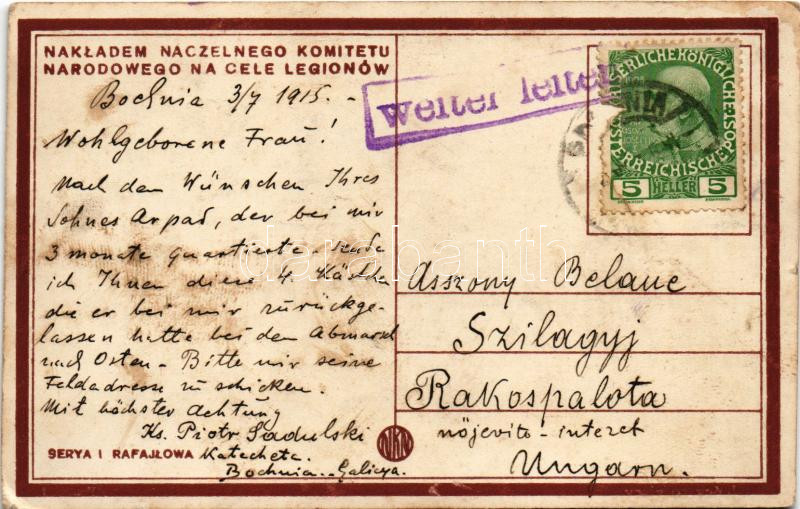 NAKŁADEM NACZELNEGO KOMITETU
NARODOWEGO NA CELE LEGIONÓW
Bochnia 3/7 1915. -
Wohlgeborene Frau!
Nach den Wünschen Ihres
Sohnes Arpad, der bei mir
3 monate quartierte - sende
ich Ihnen diese 4 Kästchen
die er bei mir zurückge-
lassen hatte bei dem Abmarsch
nach Osten - Bitte mir seine
Feldadresse zu schicken.
Mit höchster Achtung
Ks. Piotr Sadulski
Katecheta
Bochnia - Galicya.
SERYA I RAFAJŁOWA
NKN
weiter leiten
5 HELLER 5
Asszony Belane
Szilagyj
Rakospalota
nöjevito - intezet
Ungarn.
darabanth